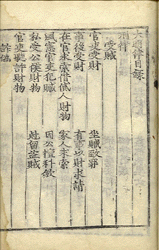 受贓
官吏受財
坐贓致罪
事後受財
有事以財請求
在官求索借貸人財物
家人求索
風憲官吏犯贓
因公擅科斂
私受公侯財物
尅留盜贓
官吏聽許財物
詐偽